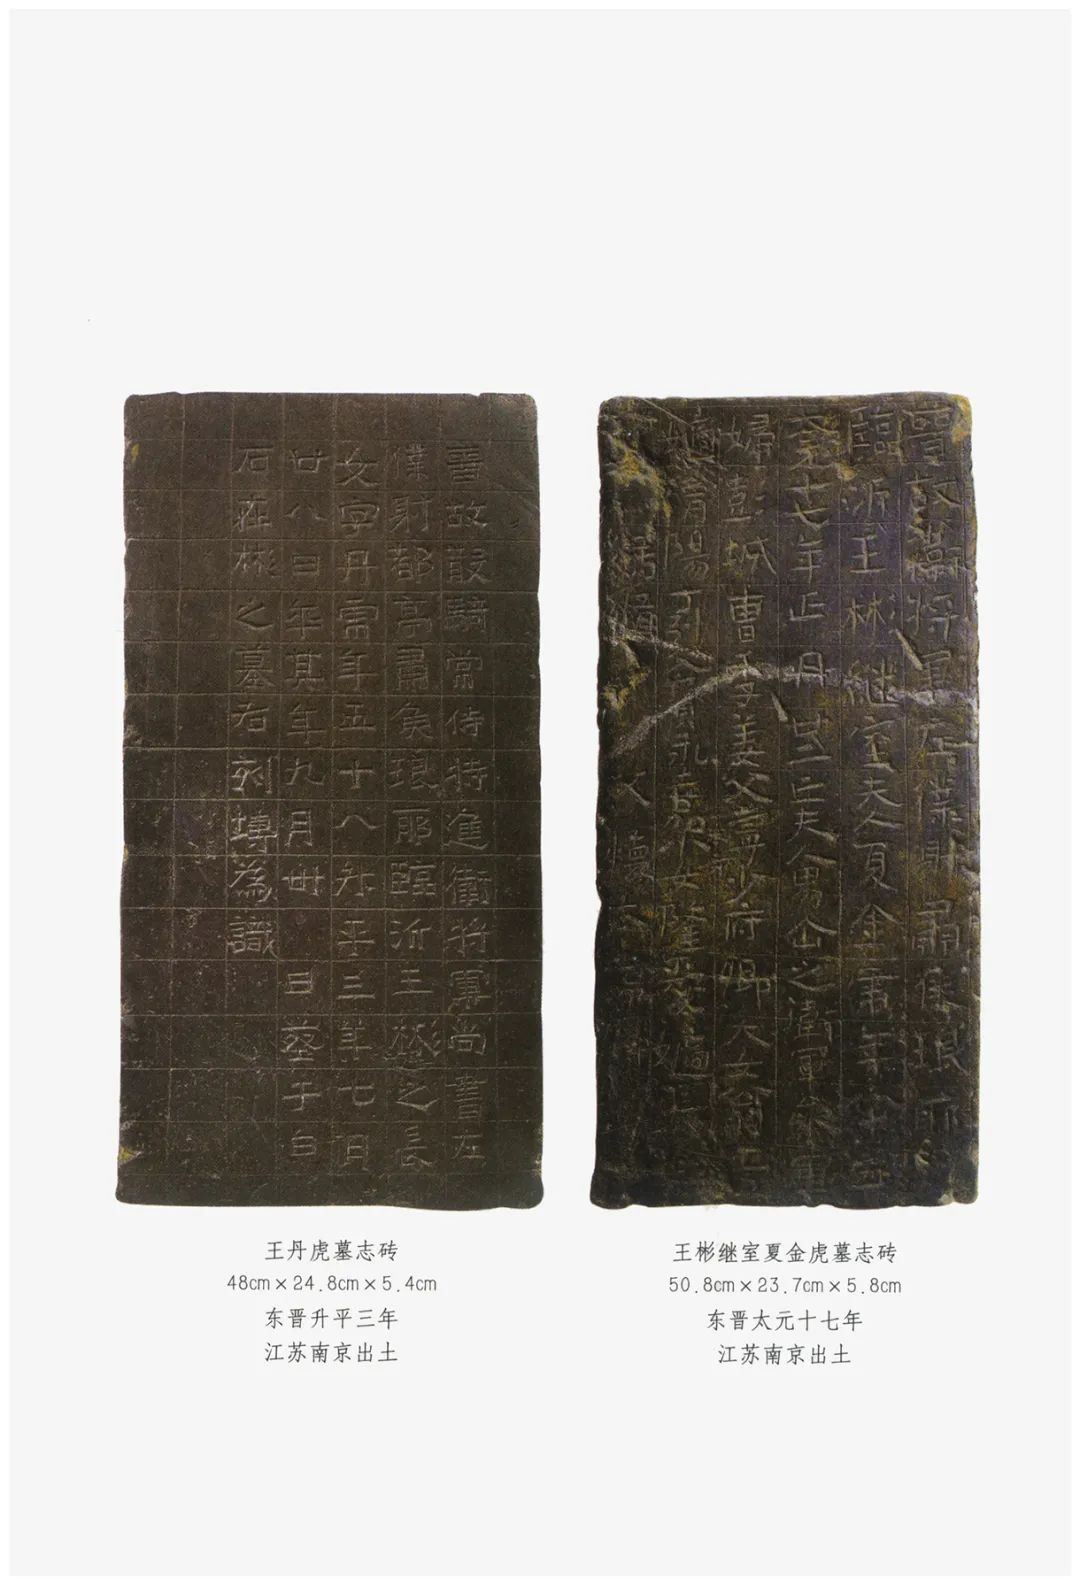 晉故散騎常侍特進衛將軍尚書左
僕射都亭肅侯琅耶臨沂王彬之長
女字丹虎年五十八升平三年七月
廿八日卒其年九月卅日葬于白
石在彬之墓右刻塼為識
晉故衛將軍左僕射肅侯琅耶
臨沂王彬継室夫人夏金虎年八十五
七年正月廿二亡夫人男企之衛軍參軍
婦彭城曹季姜父蔓少府卿大女翁
陽丁引父永嘉小女隆愛適長
父懷太常
王丹虎墓志砖
48cm×24.8cm×5.4cm
东晋升平三年
江苏南京出土
王彬继室夏金虎墓志砖
50.8cm×23.7cm×5.8cm
东晋太元十七年
江苏南京出土